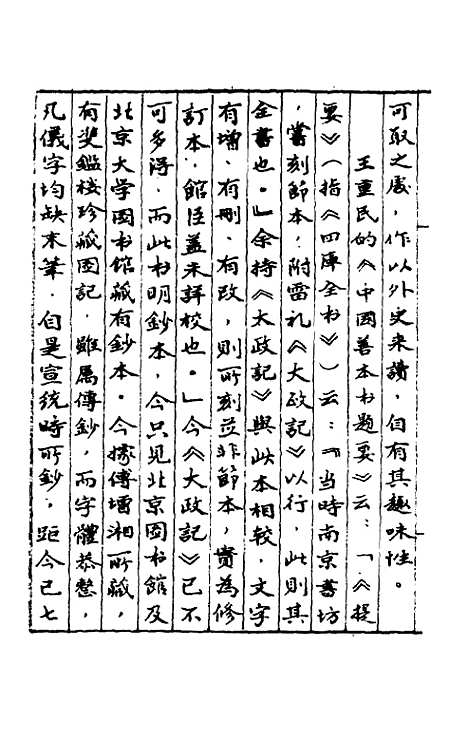 可取之處，作以外史来讀，自有其趣味性。
王重民的《中國善本书題要》云：「《提
要》（指《四庫全书》）云：『当時南京書坊
，嘗刻節本，附雷礼《大政記》以行，此則其
全書也。』余持《大政記》與此本相較，文字
有增、有刪、有改，則所刻並非節本，實為修
訂本，館臣蓋未詳校也。」今《大政記》已不
可多得，而此书明鈔本，今只見北京図书館及
北京大学図书館藏有鈔本。今據傅增湘所藏，
有斐鑑棧珍藏図記，雖属傳鈔，而字體恭整，
凡儀字均缺末筆，自是宣統時所鈔，距今已七